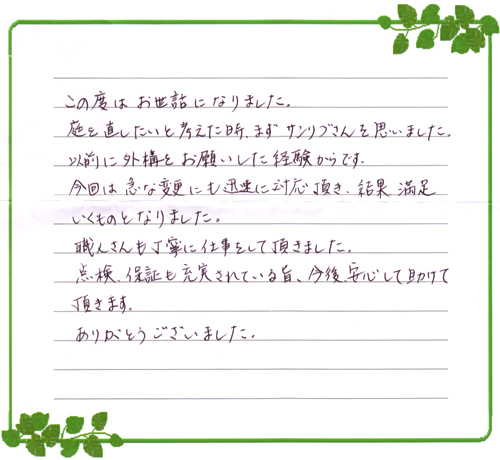 この度は お世話になりました。
庭を直したいと考えた時、まず サンリブさんを思いました。
以前に外構を お願いした経験からです。
今回は 急な変更にも迅速に対応頂き、結果 満足
いくものとなりました。
職人さんも丁寧に仕事をして頂きました。
点検、保証も充実されている旨、今後、安心して助けて
頂きます。
ありがとうございました。